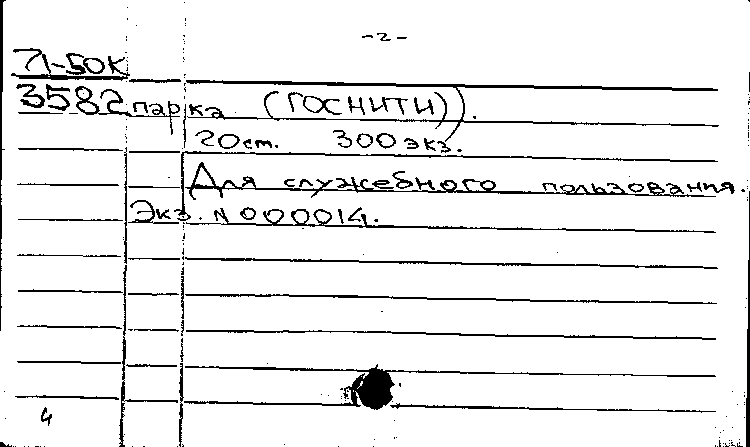 -2-
71-50К
3582 парка (ГОСНИТИ)).
20 ст. 300 экз.
Для служебного пользования.
Экз. N 000014.
4